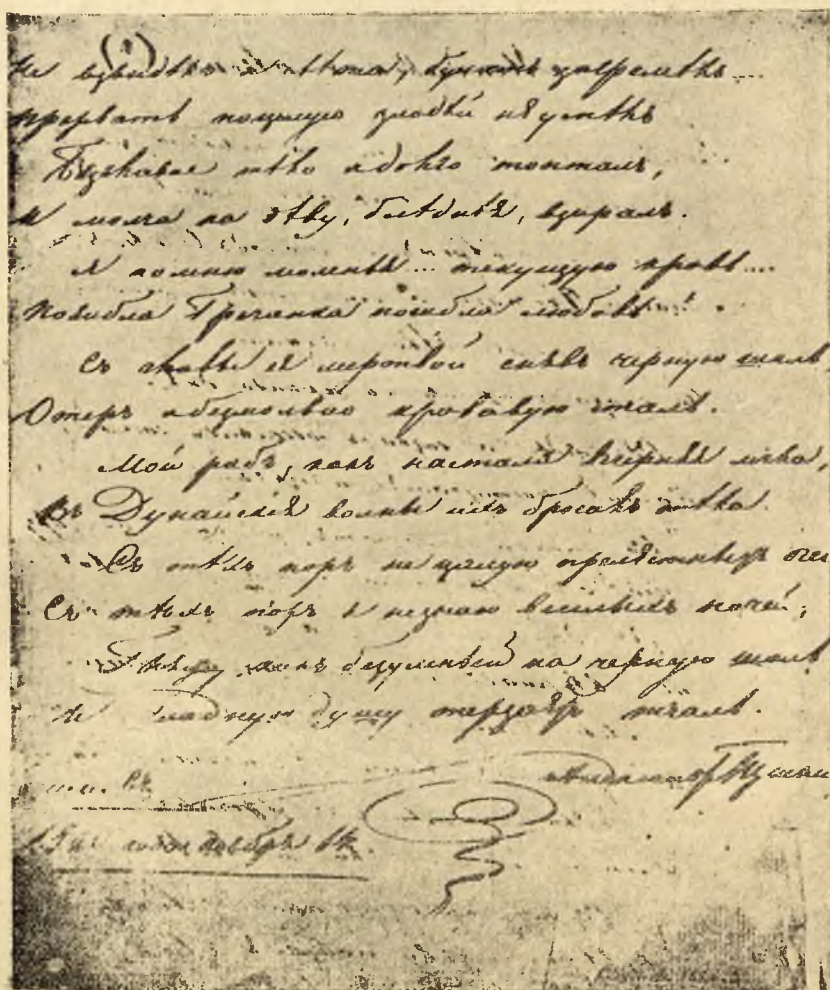 Не взвидѣлъ я свѣта, булатъ загремѣлъ ....
Прервать поцелуя злодѣй не успѣлъ
Безглавое тѣло я долго топталъ,
И молча на дѣву, блѣднѣя, взиралъ.
Я помню моленья ... текущую кровь ....
Погибла Гречанка погибла любовь!
Съ главы ея мертвой снявъ черную шаль,
Отеръ я безмолвно кровавую сталь.
Мой рабъ, какъ настала вечерня мгла,
Въ Дунайскія волны ихъ бросилъ тѣла.
Съ тѣхъ поръ не цалую прелестныхъ оче
Съ тѣхъ поръ я не знаю веселыхъ ночей;
Гляжу какъ безумный на черную шаль
И хладную душу терзаетъ печаль.
Александръ Пушкин